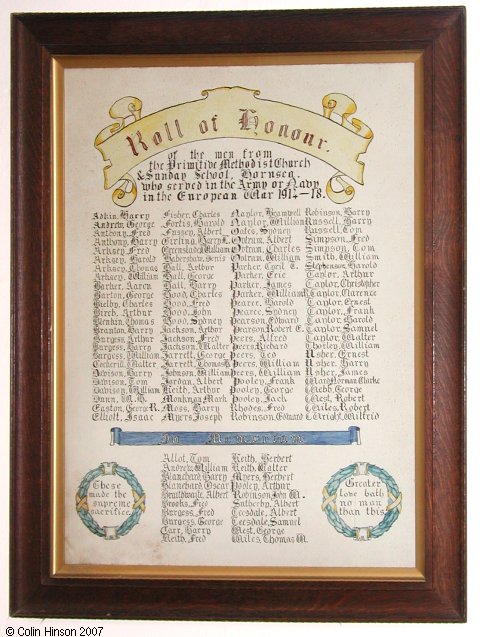 Roll of Honour.
of the men from
the Primitive Methodist Church
& Sunday School, Hornsea.
who served in the Army or Navy
in the European War 1914-18.
Adkin, Harry Fisher, Charles Naylor, Bramwell Robinson, Harry
Andrew, George Fortis, Harold Naylor, William Russell, Harry
Anthony, Fred Fussey, Albert Oates, Sydney Russell, Tom
Anthony, Harry Girling, Harry L. Outram, Albert Simpson, Fred
Arksey, Fred Greenstade, William Outram, Charles Simpson, Tom
Arksey, Harold Habershaw, Denis Outram, William Smith, William
Arksey, Thomas Hall, Arthur Parker, Cyril T. Stephenson, Harold
Arksey, William Hall, George Parker, Eric Taylor, Arthur
Barker, Aaron Hall, Harry Parker, James Taylor, Christopher
Barton, George Hood, Charles Parker, William H Taylor, Clarence
Bielby, Charles Hood, Fred Pearce, Harold Taylor, Ernest
Birch, Arthur Hood, John Pearce, Sydney Taylor, Frank
Blenkin, Thomas Hood, Sydney Pearson, Edward Taylor, Harold
Branton, Harry Jackson, Arthur Pearson, Robert E. Taylor, Samuel
Burgess, Arthur Jackson, Fred Peers, Alfred Taylor, Walter
Burgess, Harry Jackson, Walter Peers, Richard Thorley, William
Burgess, William Jarrett, George Peers, Ted Usher, Ernest
Cockerill, Walter Jarrett, Thomas H. Peers, William Usher, Harry
Davison, Harry Johnson, William Peers, William Usher, James
Davison, Tom Jordan, Albert Pooley, Frank Ward, Norman Clarke
Davison, William Keith, Arthur Pooley, George Webb, George
Dunn, W. H. Monkman, Mark Pooley, Jack West, Robert
Easton, George R. Moss, Harry Rhodes, Fred Wiles, Robert
Elliott, Isaac Myers, Joseph Robinson, Edward C. Wright, Wilfrid
In Memoriam
Allot, Tom Keith, Herbert
Andrew, William Keith, Walter
Blanchard, Harry Myers, Herbert
Blanchard, Oscar Pooley, Arthur
Braithwaite, Albert Robinson, John W.
Brooks, Fred Sutherby, Albert
Burgess, Fred Teesdale, Albert
Burgess, George Teesdale, Samuel
Carr, Harry West, George
Keith, Fred Wiles, Thomas W.
These
made the
supreme
sacrifice
Greater
love hath
no man
than this
© Colin Hinson 2007